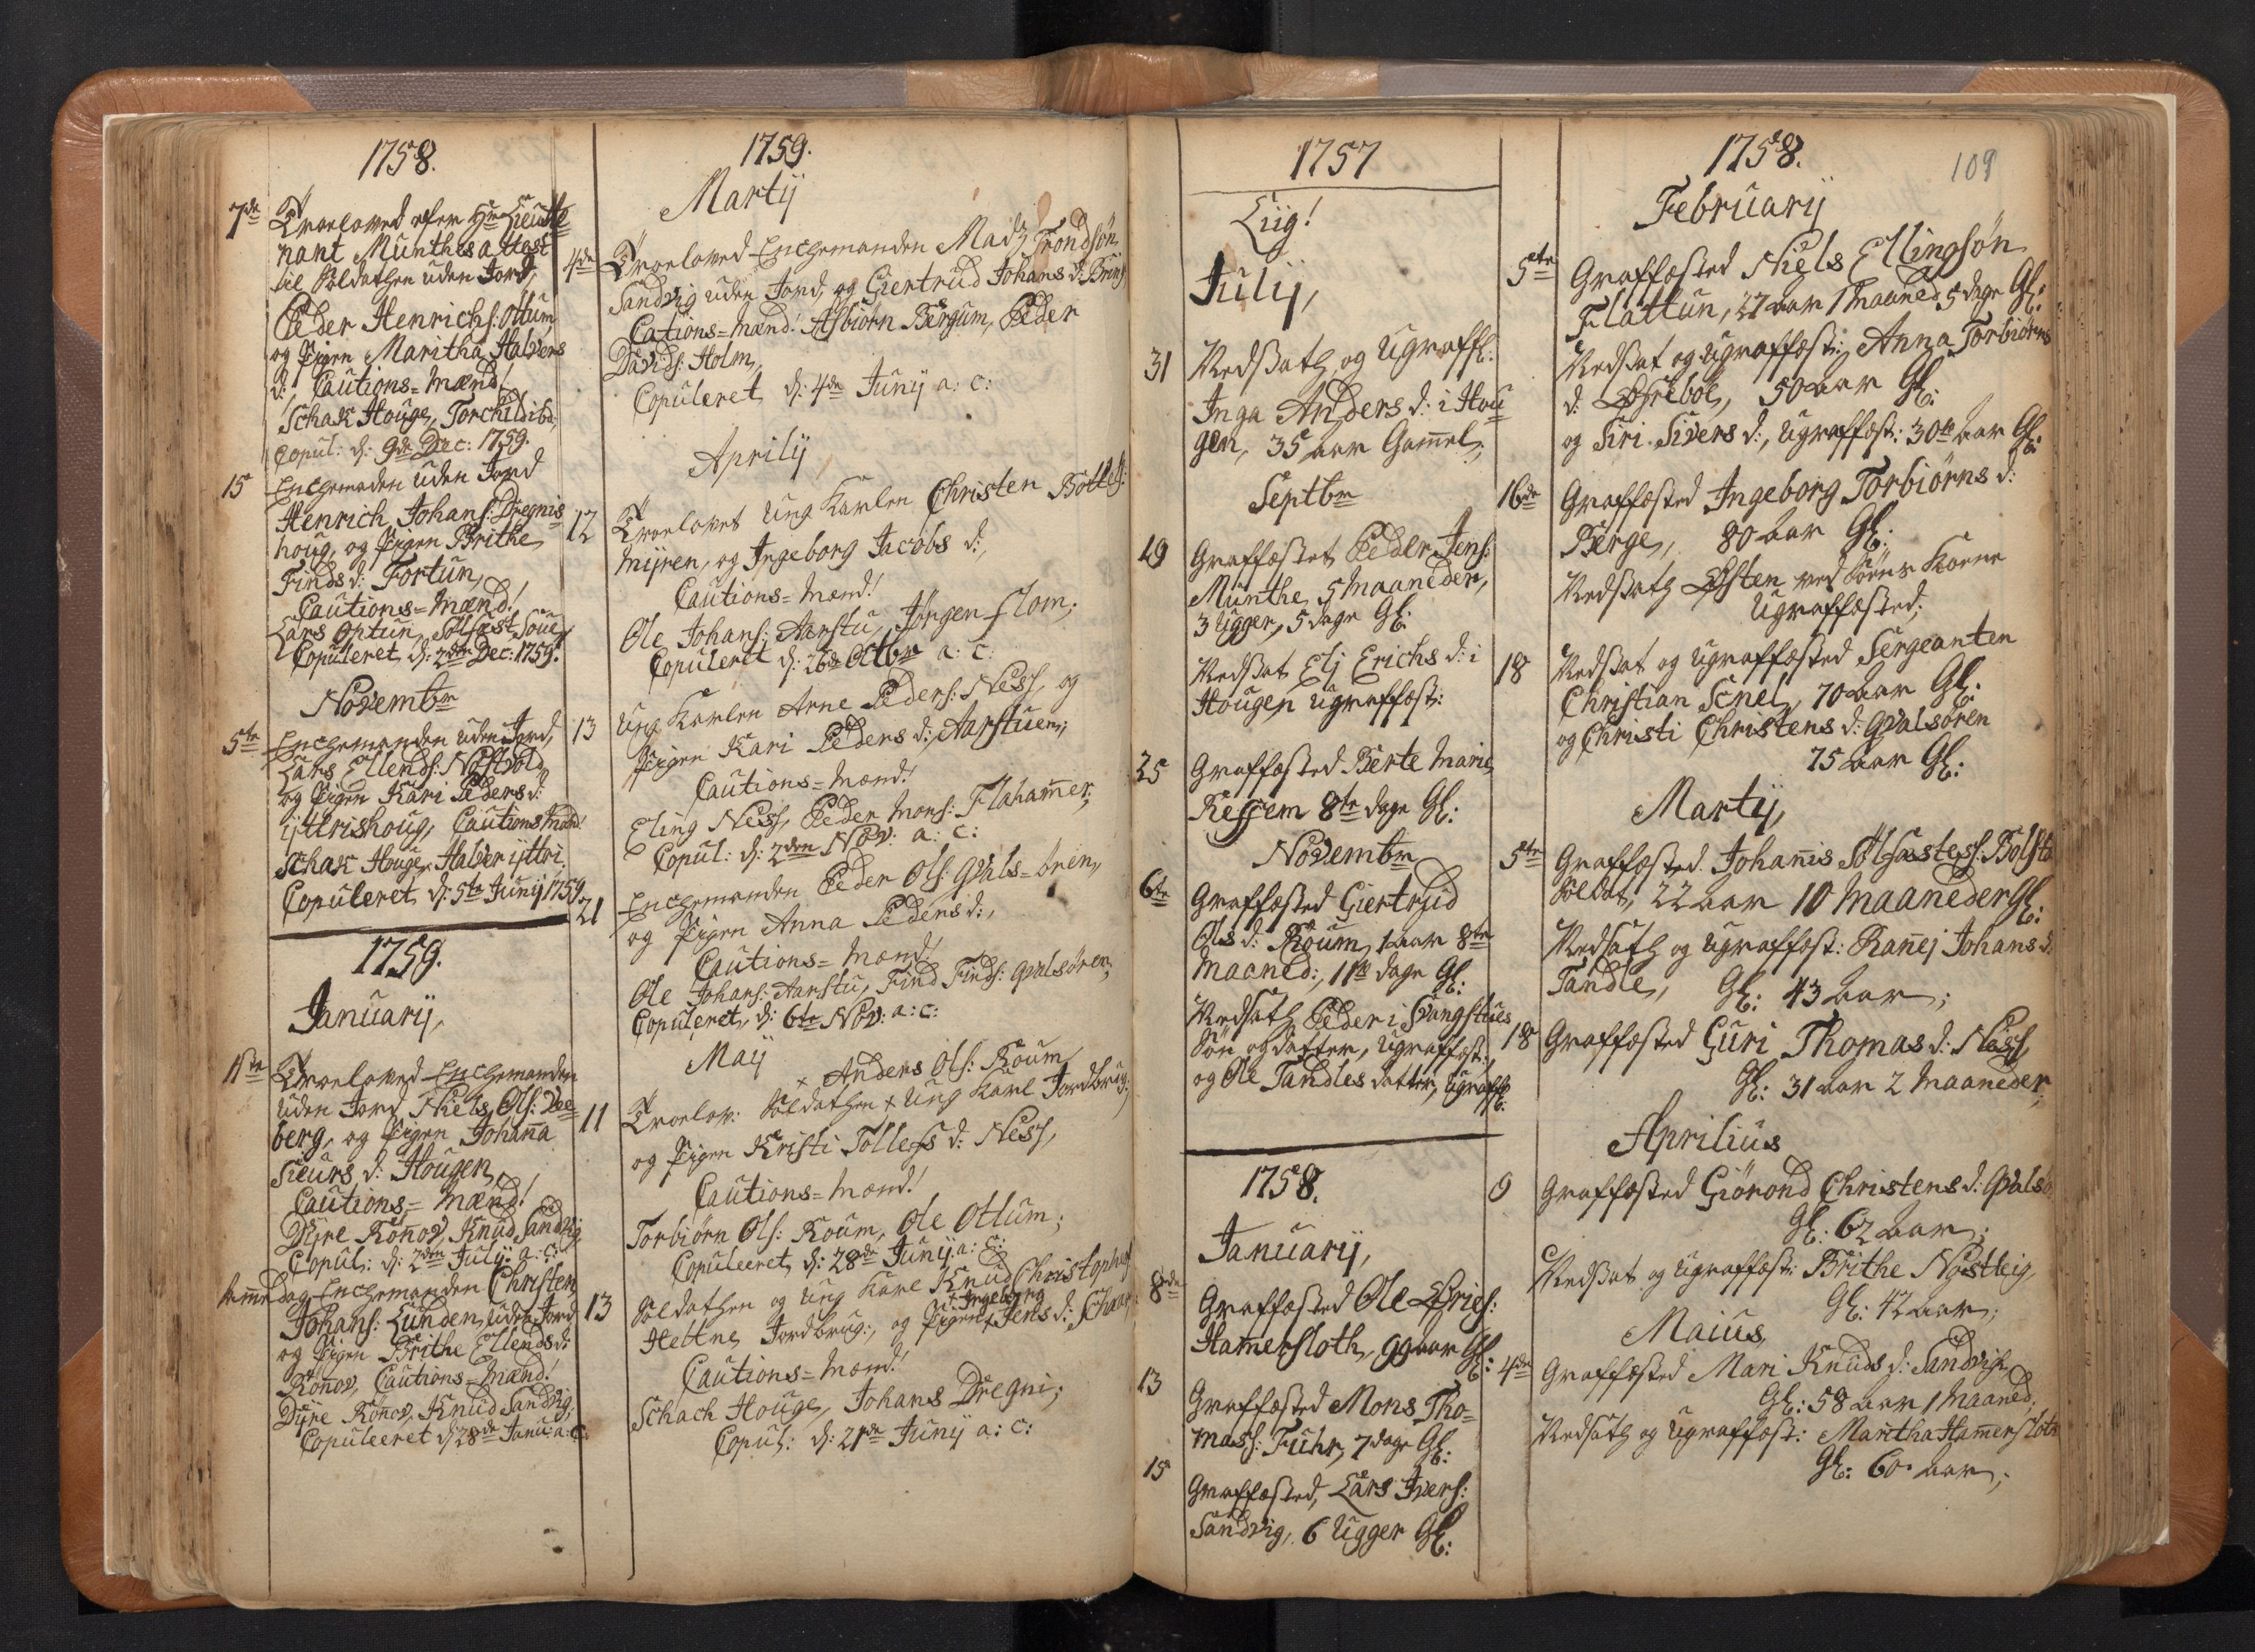 1758.
7de Troeloved efter Hr Lieute
nant Munthes a Test
til Soldathen uden Jord,
Peder Henrichs: Ottum,
og Pigen Maritha Halvers
d:, Cautions=Mænd!
Schak Houge, Torchild ibd:
Copul: d: 9de Dec: 1759.
15 Enchemanden uden Jord
Henrich Johans: Dregnis
houg, og Pigen Brithe
Finds d: Fortun,
Cautions=Mænd!
Lars Optun, Solfæst
Copuleret d: 2den Dec: 1759.
Novembr
5te Enchemanden uden Jord,
Lars Ellends:
og Pigen Kari Peders d:
ÿttrishoug, Cautions Mænd!
Schak Houge, Halver ÿttri,
Copuleret d: 5te Junÿ 1759.
1759.
Januarÿ,
1ste Troeloved Enchemanden
uden Jord Niels Ols: Vee
berg, og Pigen Johanna
Sieurs d: Hougen,
Cautions=Mænd!
Dÿre Kronov, Knud Sandvig
Copul: d: 2den Julÿ: a: c:
samme dag Enchemanden Christen
Johans: Lunden, uden Jord
og Pigen Brithe Ellends d:
Kronov, Cautions=Mænd!
Dÿre Kronov, Knud Sandvig;
Copuleeret d: 28de Janu: a: c:
1759.
Martÿ
4de Troeloved Enchemanden Madz Trondsøn
Sandvig uden Jord, og Giertrud Johans d: Bring
Cations=Mænd! Asbiørn Bergum, Peder
Davids: Holm,
Copuleret d: 4de Junÿ a: c:
Aprilÿ,
12 Troelovet Ung Karlen Christen Bottels:
Mÿren, og Ingeborg Jacobs d:,
Cautions=Mænd!
Ole Johans: Aarstu, Jørgen Flom;
Copuleret d: 26de Octbr a: c:
13 Ung Karlen Arne Peders: Ness, og
Pigen Kari Peders d: Aarstuen;
Cautions=Mænd!
Eling Ness, Peder Mons: Flahammer;
Copul: d: 2den Nov: a: c:
21 Enchemanden Peder Ols: Qvals-ören,
og Pigen Anna Peders d:,
Cautions=Mænd!
Ole Johans: Aarstu, Find Finds: Qvalsøren;
Copuleret, d: 6te Nov: a: c:
Maÿ
x Anders Ols: Roum
11 Troelov: Soldathen x Ung Karl Jordbrug:
og Pigen Kristi Tollefs d: Ness,
Cautions=Mænd!
Torbiørn Ols: Roum, Ole Otlum;
Copuleeret d: 28de Junÿ a: c:
13 Soldathen og Ung Karl Knud Christophers
x Ingeborg
Heltne Jordbrug:, og Pigen x Jens d: Schaar
Cautions=Mænd!
Schach Houge, Johans Dregni;
Copul: d: 21de Junÿ a: c:
1757
Liig!
Julÿ,
31 Nedsath og Ugraffl:
Inga Anders d: i Hou
gen, 35 aar Gammel;
Septbr
19 Graffæstet Peder Jens:
Munthe, 5 Maaneder,
3 Ugger, 5 dage Gl:
Nedsat Elj Erichs d: i
Hougen ugraffæst:
25 Graffæsted Berte Marie
Kessem 8te dage Gl:
Novembr
6te Graffæsted Giertrud
Ols d: Roum, 1 aar 8te
Maaned:, 11te dage Gl:
Nedsath Peder i Svangstues
Søn og datter, ugraffæst:,
og Ole Tandles datter, ugraffl:
1758.
Januarÿ,
8de Graffæsted Ole Bries:
Hamersloth, 99 aar Gl:
13 Graffæsted Mons Tho=
mass: Fuhr, 7 dage Gl:
15 Graffæsted, Lars Ivers:
Sandvig, 6 Ugger Gl:
1758. 109
Februarÿ
5te Graffæsted Niels Ellingsøn
Flattun, 27 aar 1 Maaned 5 dage Gl:
Nedsat og ugraffæst: Anna Torbiørns
d: Øhrebøe, 50 aar Gl:
og Siri Sivers d:, ugraffæst: 30te aar Gl:
16de Graffæsted Ingeborg Torbiørns d:
Berge, 80 aar Gl:
Nedsath Østen ved Søens Kone
ugraffæsted;
18 Nedsat og ugraffæsted Sergeanten
Christian Scnel, 70 aar Gl:
og Christi Christens d: Qvalsøren
75 aar Gl:
Martÿ,
5te Graffæsted Johannis Solfæstess: Bolsta
Soldat, 22 aar 10 Maaneder Gl:
Nedsath og ugraffæst: Rannej Johans d:
Tandle, Gl: 43 aar;
18 Graffæsted Guri Thomas d: Næss,
Gl: 31 aar 2 Maaneder;
Aprilius
9 Graffæsted Giørond Christens d: Qvalsø
Gl: 62 aar;
Nedsat og ugraffæst: Brithe Nÿstteig,
Gl: 42 aar;
Maius,
4de Graffæsted Mari Knuds d: Sandvig,
Gl: 58 aar 1 Maaned;
Nedsath og ugraffæst: Maritha Hamerslot
Gl: 60 aar;